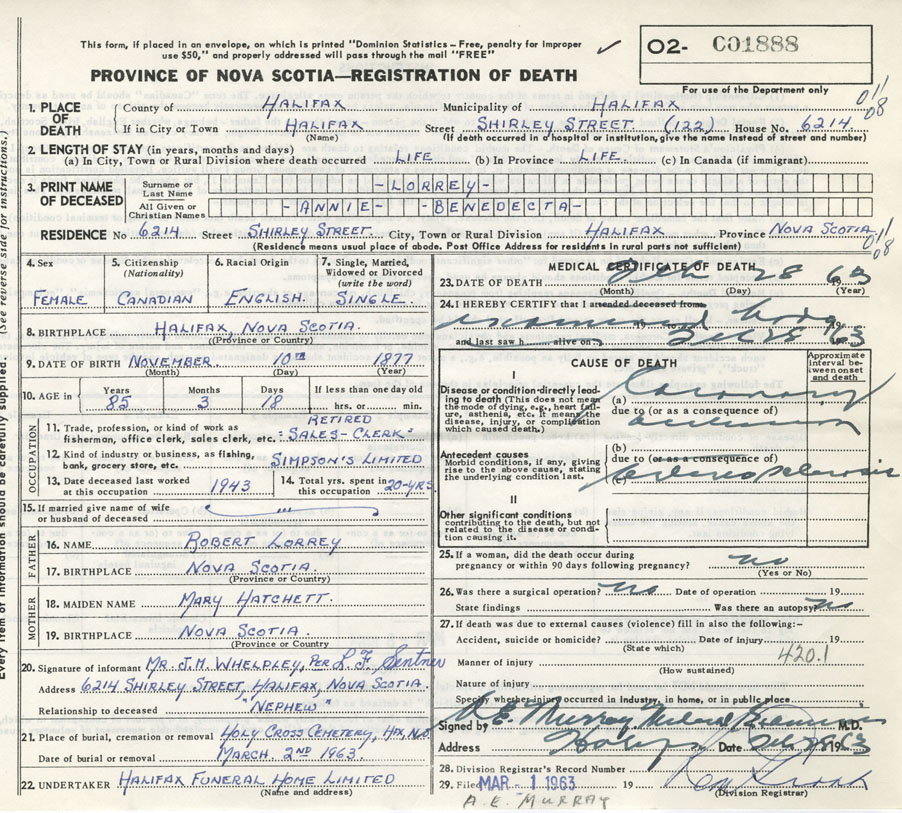 This form, if placed in an envelope, on which is printed "Dominion Statistics – Free, penalty for improper
use $50," and properly addressed will pass through the mail "FREE"
✓
O2- C01888
PROVINCE OF NOVA SCOTIA—REGISTRATION OF DEATH
For use of the Department only
1. PLACE OF DEATH
County of HALIFAX Municipality of HALIFAX
011/08
If in City or Town HALIFAX Street SHIRLEY STREET (122) House No. 6214
(Name) (If death occurred in a hospital or institution, give the name instead of street and number)
2. LENGTH OF STAY (in years, months and days)
(a) In City, Town or Rural Division where death occurred LIFE (b) In Province LIFE. (c) In Canada (if immigrant)
3. PRINT NAME OF DECEASED
Surname or Last Name -LORREY-
All Given or Christian Names -ANNIE- -BENEDECTA-
RESIDENCE No 6214 Street SHIRLEY STREET City, Town or Rural Division HALIFAX Province NOVA SCOTIA
011/08
(Residence means usual place of abode. Post Office Address for residents in rural parts not sufficient)
4. Sex FEMALE
5. Citizenship (Nationality) CANADIAN
6. Racial Origin ENGLISH.
7. Single, Married, Widowed or Divorced (write the word) SINGLE.
8. BIRTHPLACE HALIFAX, NOVA SCOTIA.
(Province or Country)
9. DATE OF BIRTH NOVEMBER 10TH 1877
(Month) (Day) (Year)
10. AGE in Years 85 Months 3 Days 18 If less than one day old hrs. or min.
OCCUPATION
11. Trade, profession, or kind of work as fisherman, office clerk, sales clerk, etc. RETIRED "SALES-CLERK"
12. Kind of industry or business, as fishing, bank, grocery store, etc. SIMPSON'S LIMITED
13. Date deceased last worked at this occupation 1943
14. Total yrs. spent in this occupation 20-YRS
15. If married give name of wife or husband of deceased
FATHER
16. NAME ROBERT LORREY
17. BIRTHPLACE NOVA SCOTIA.
(Province or Country)
MOTHER
18. MAIDEN NAME MARY HATCHETT.
19. BIRTHPLACE NOVA SCOTIA.
(Province or Country)
20. Signature of informant MR. J.M. WHELPLEY, PER L. F.
Address 6214 SHIRLEY STREET, HALIFAX, NOVA SCOTIA.
Relationship to deceased "NEPHEW"
21. Place of burial, cremation or removal HOLY CROSS CEMETERY, HFX, N.S.
Date of burial or removal MARCH. 2ND 1963.
22. UNDERTAKER HALIFAX FUNERAL HOME LIMITED
(Name and address)
MEDICAL CERTIFICATE OF DEATH
23. DATE OF DEATH Feb 28 1963
(Month) (Day) (Year)
24. I HEREBY CERTIFY that I attended deceased from
examined body 19
and last saw h alive on Feb 28 63
CAUSE OF DEATH
Approximate interval between onset and death
I
Disease or condition directly leading to death (This does not mean the mode of dying, e.g., heart failure, asthenia, etc. It means the disease, injury, or complication which caused death.)
(a) Coronary
due to (or as a consequence of)
occlusion
Antecedent causes
Morbid conditions, if any, giving rise to the above cause, stating the underlying condition last.
(b)
due to (or as a consequence of)
(c)
II
Other significant conditions
contributing to the death, but not related to the disease or condition causing it.
25. If a woman, did the death occur during pregnancy or within 90 days following pregnancy? no
(Yes or No)
26. Was there a surgical operation? no Date of operation 19
State findings Was there an autopsy? no
27. If death was due to external causes (violence) fill in also the following:-
Accident, suicide or homicide? Date of injury 19
(State which)
420.1
Manner of injury
(How sustained)
Nature of injury
Specify whether injury occurred in industry, in home, or in public place
Signed by A.E. Murray Medical Examiner M.D.
Address Date Feb 28 1963
28. Division Registrar's Record Number
29. Filed MAR - 1 1963 19
(Division Registrar)
A.E. MURRAY
Every item of information should be carefully supplied. (See reverse side for instructions.)